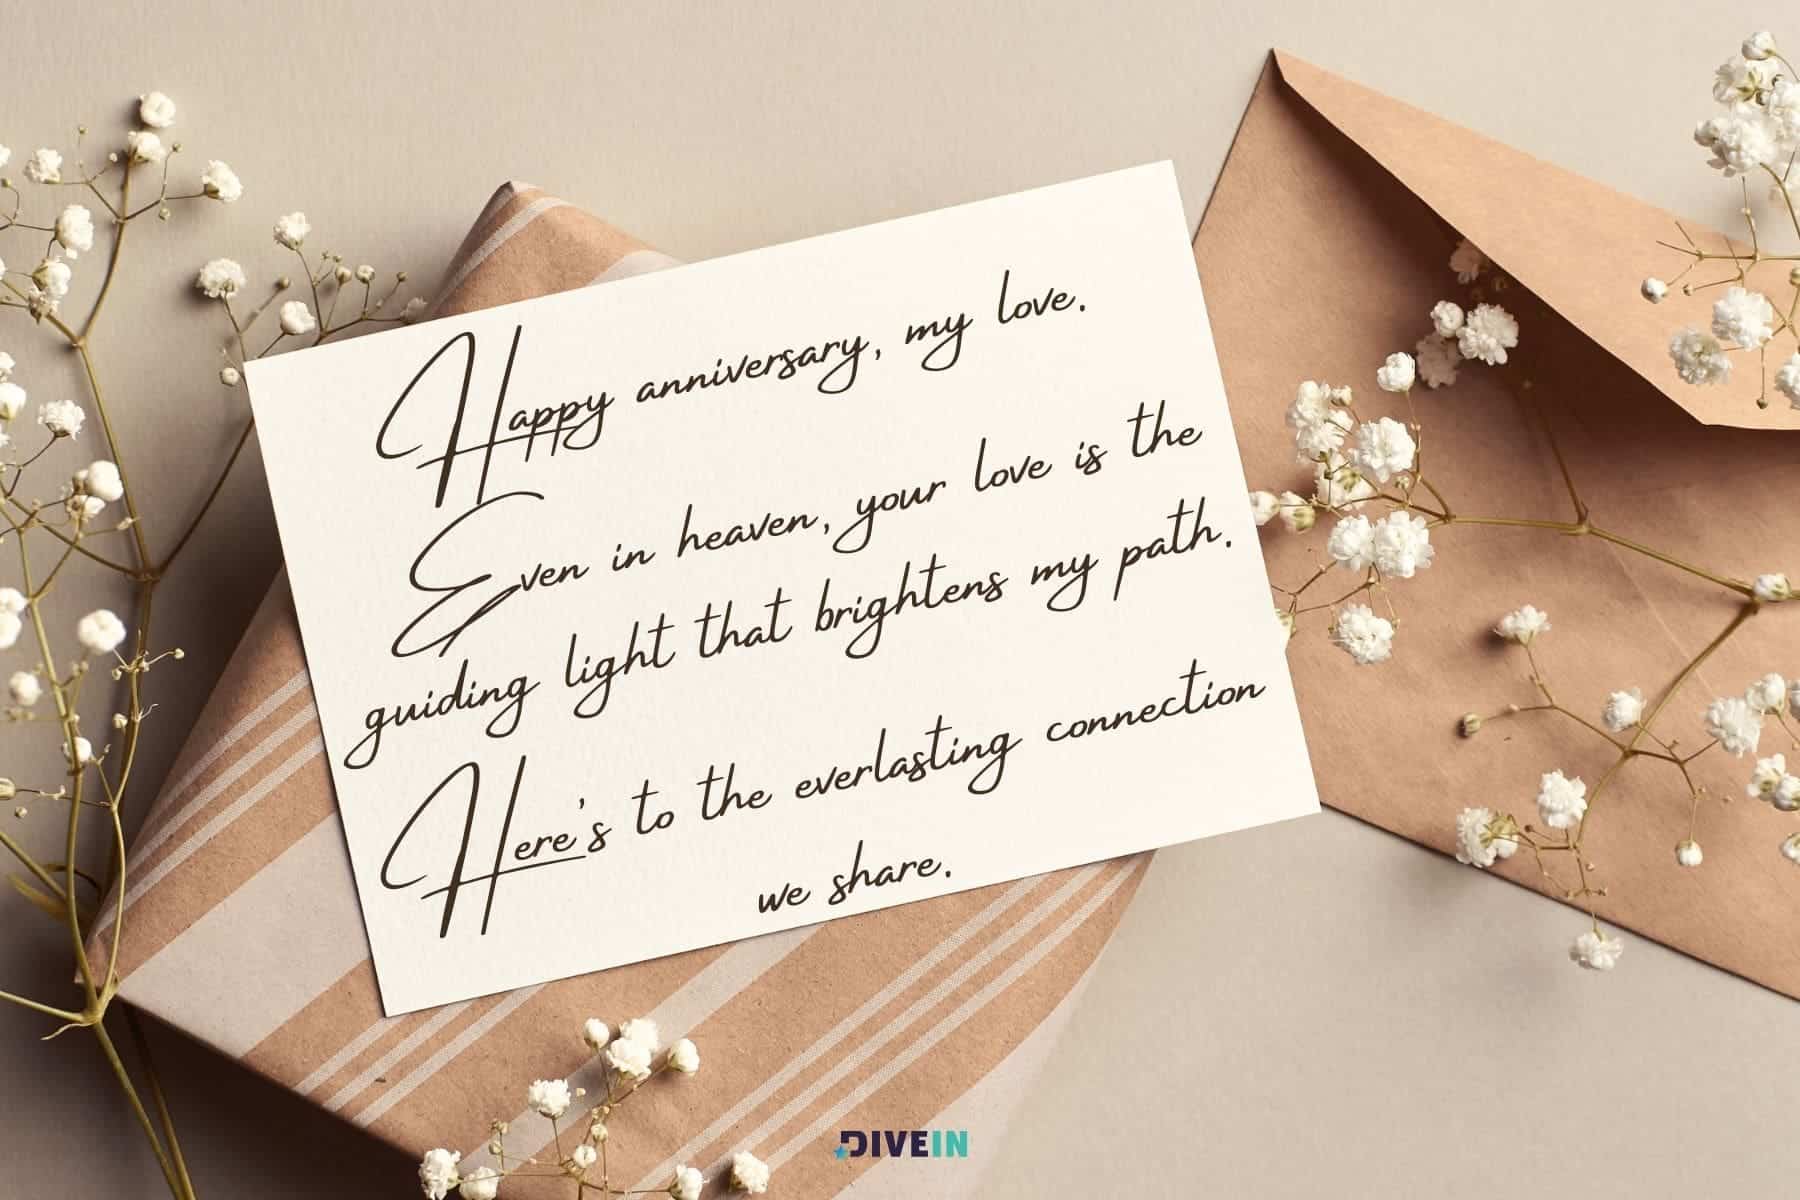 Happy anniversary, my love.
Even in heaven, your love is the
guiding light that brightens my path.
Here's to the everlasting connection
we share.
DIVEIN